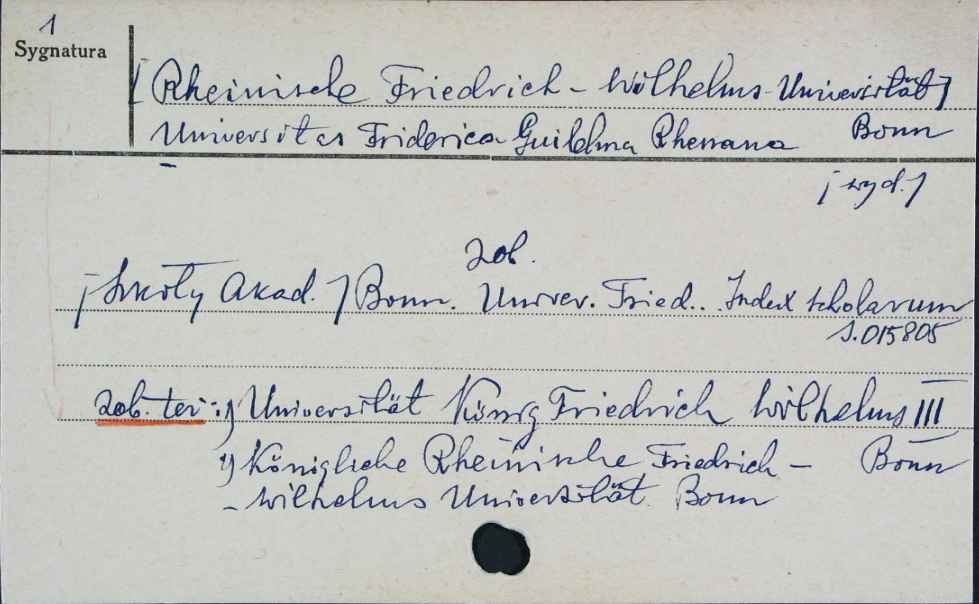 1
Sygnatura
[Rheinische Friedrich-Wilhelms-Universität]
Universitas Friderica Guilelma Rhenana Bonn
[wyd.]
zob.
[Szkoły Akad.] Bonn. Univer. Fried... Index scholarum
S.015805
zob. też: 1) Universität König Friedrich Wilhelms III
Bonn
2) Königliche Rheinische Friedrich-
-Wilhelms Universität. Bonn